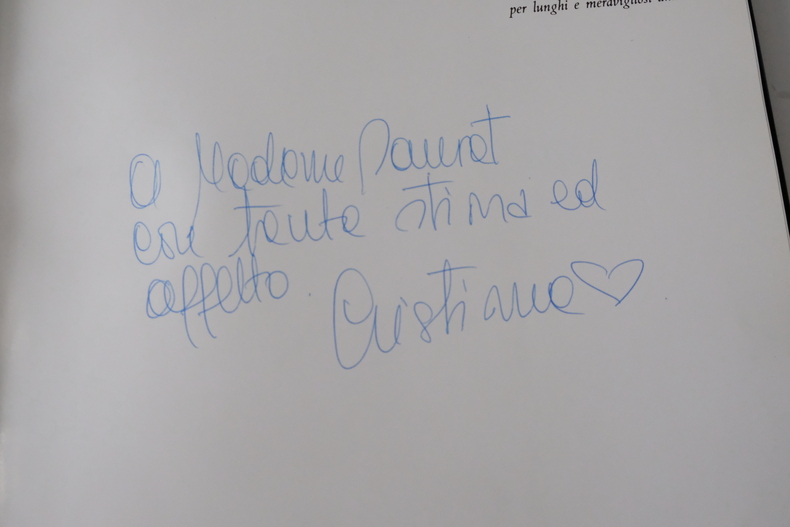 per lunghi e meravigliosi
A Madame Pauvrat
con tanta stima ed
affetto.
Cristiano